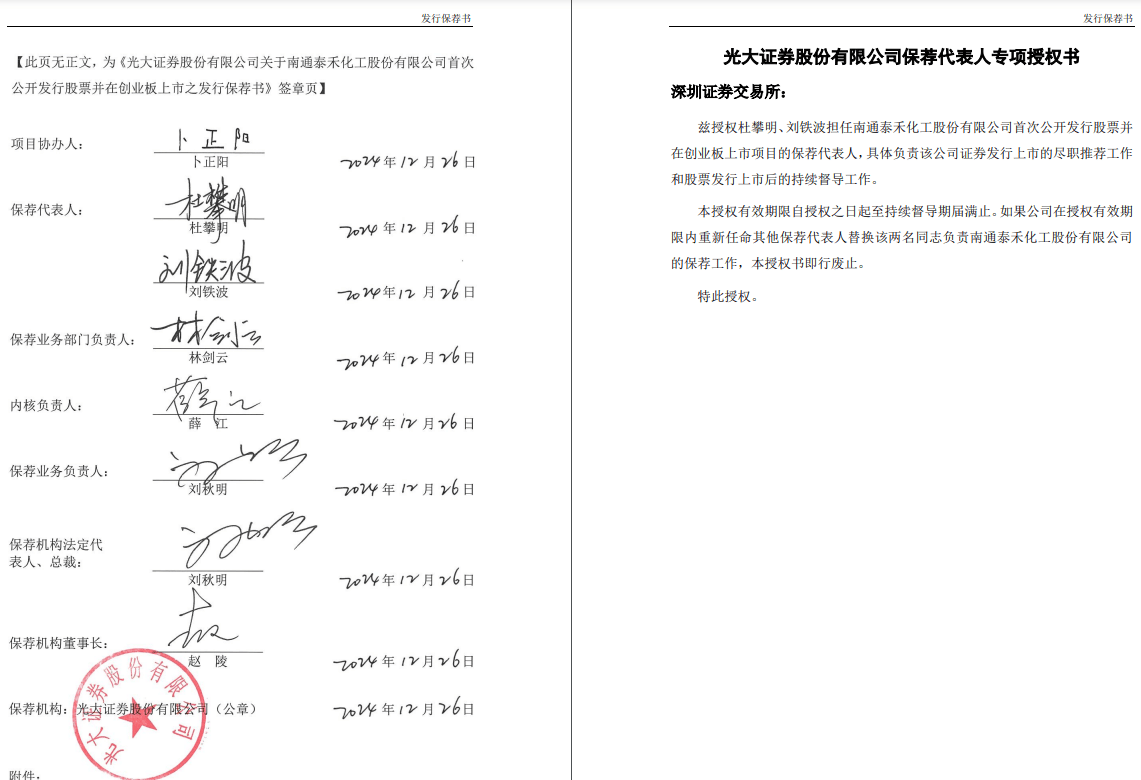 发行保荐书
【此页无正文，为《光大证券股份有限公司关于南通泰禾化工股份有限公司首次
公开发行股票并在创业板上市之发行保荐书》签章页】
项目协办人：
卜正阳
卜正阳
2024年12月26日
保荐代表人：
杜攀明
杜攀明
2024年12月26日
刘铁波
刘铁波
2024年12月26日
保荐业务部门负责人：
林剑云
林剑云
2024年12月26日
内核负责人：
薛江
薛 江
2024年12月26日
保荐业务负责人：
刘秋明
2024年12月26日
保荐机构法定代
表人、总裁：
刘秋明
2024年12月26日
保荐机构董事长：
赵 陵
2024年12月26日
保荐机构：光大证券股份有限公司（公章）
2024年12月26日
光大证券股份有限公司
附件：
发行保荐书
光大证券股份有限公司保荐代表人专项授权书
深圳证券交易所：
兹授权杜攀明、刘铁波担任南通泰禾化工股份有限公司首次公开发行股票并
在创业板上市项目的保荐代表人，具体负责该公司证券发行上市的尽职推荐工作
和股票发行上市后的持续督导工作。
本授权有效期限自授权之日起至持续督导期届满止。如果公司在授权有效期
限内重新任命其他保荐代表人替换该两名同志负责南通泰禾化工股份有限公司
的保荐工作，本授权书即行废止。
特此授权。